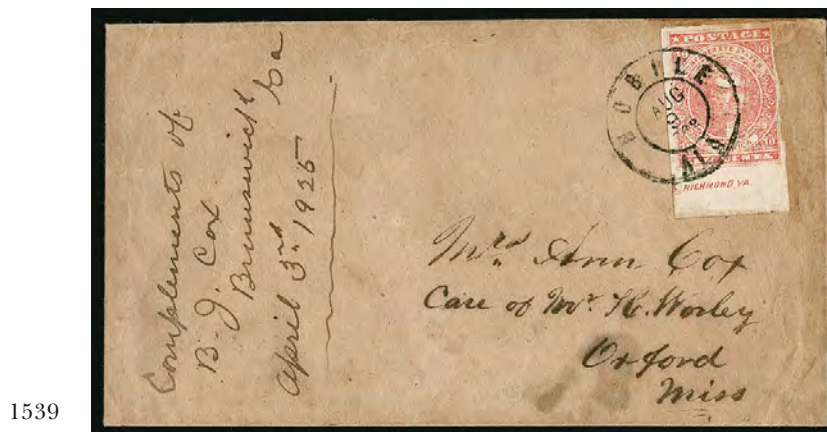 Complements of
B. J. Cox
Brunswick Ga
April 3rd 1925
POSTAGE
10 10
MOBILE
AUG
ALA
10
TEN CENTS
RICHMOND, VA.
Mrs Ann Cox
Care of Mr. K. Worley
Oxford
Miss
1539